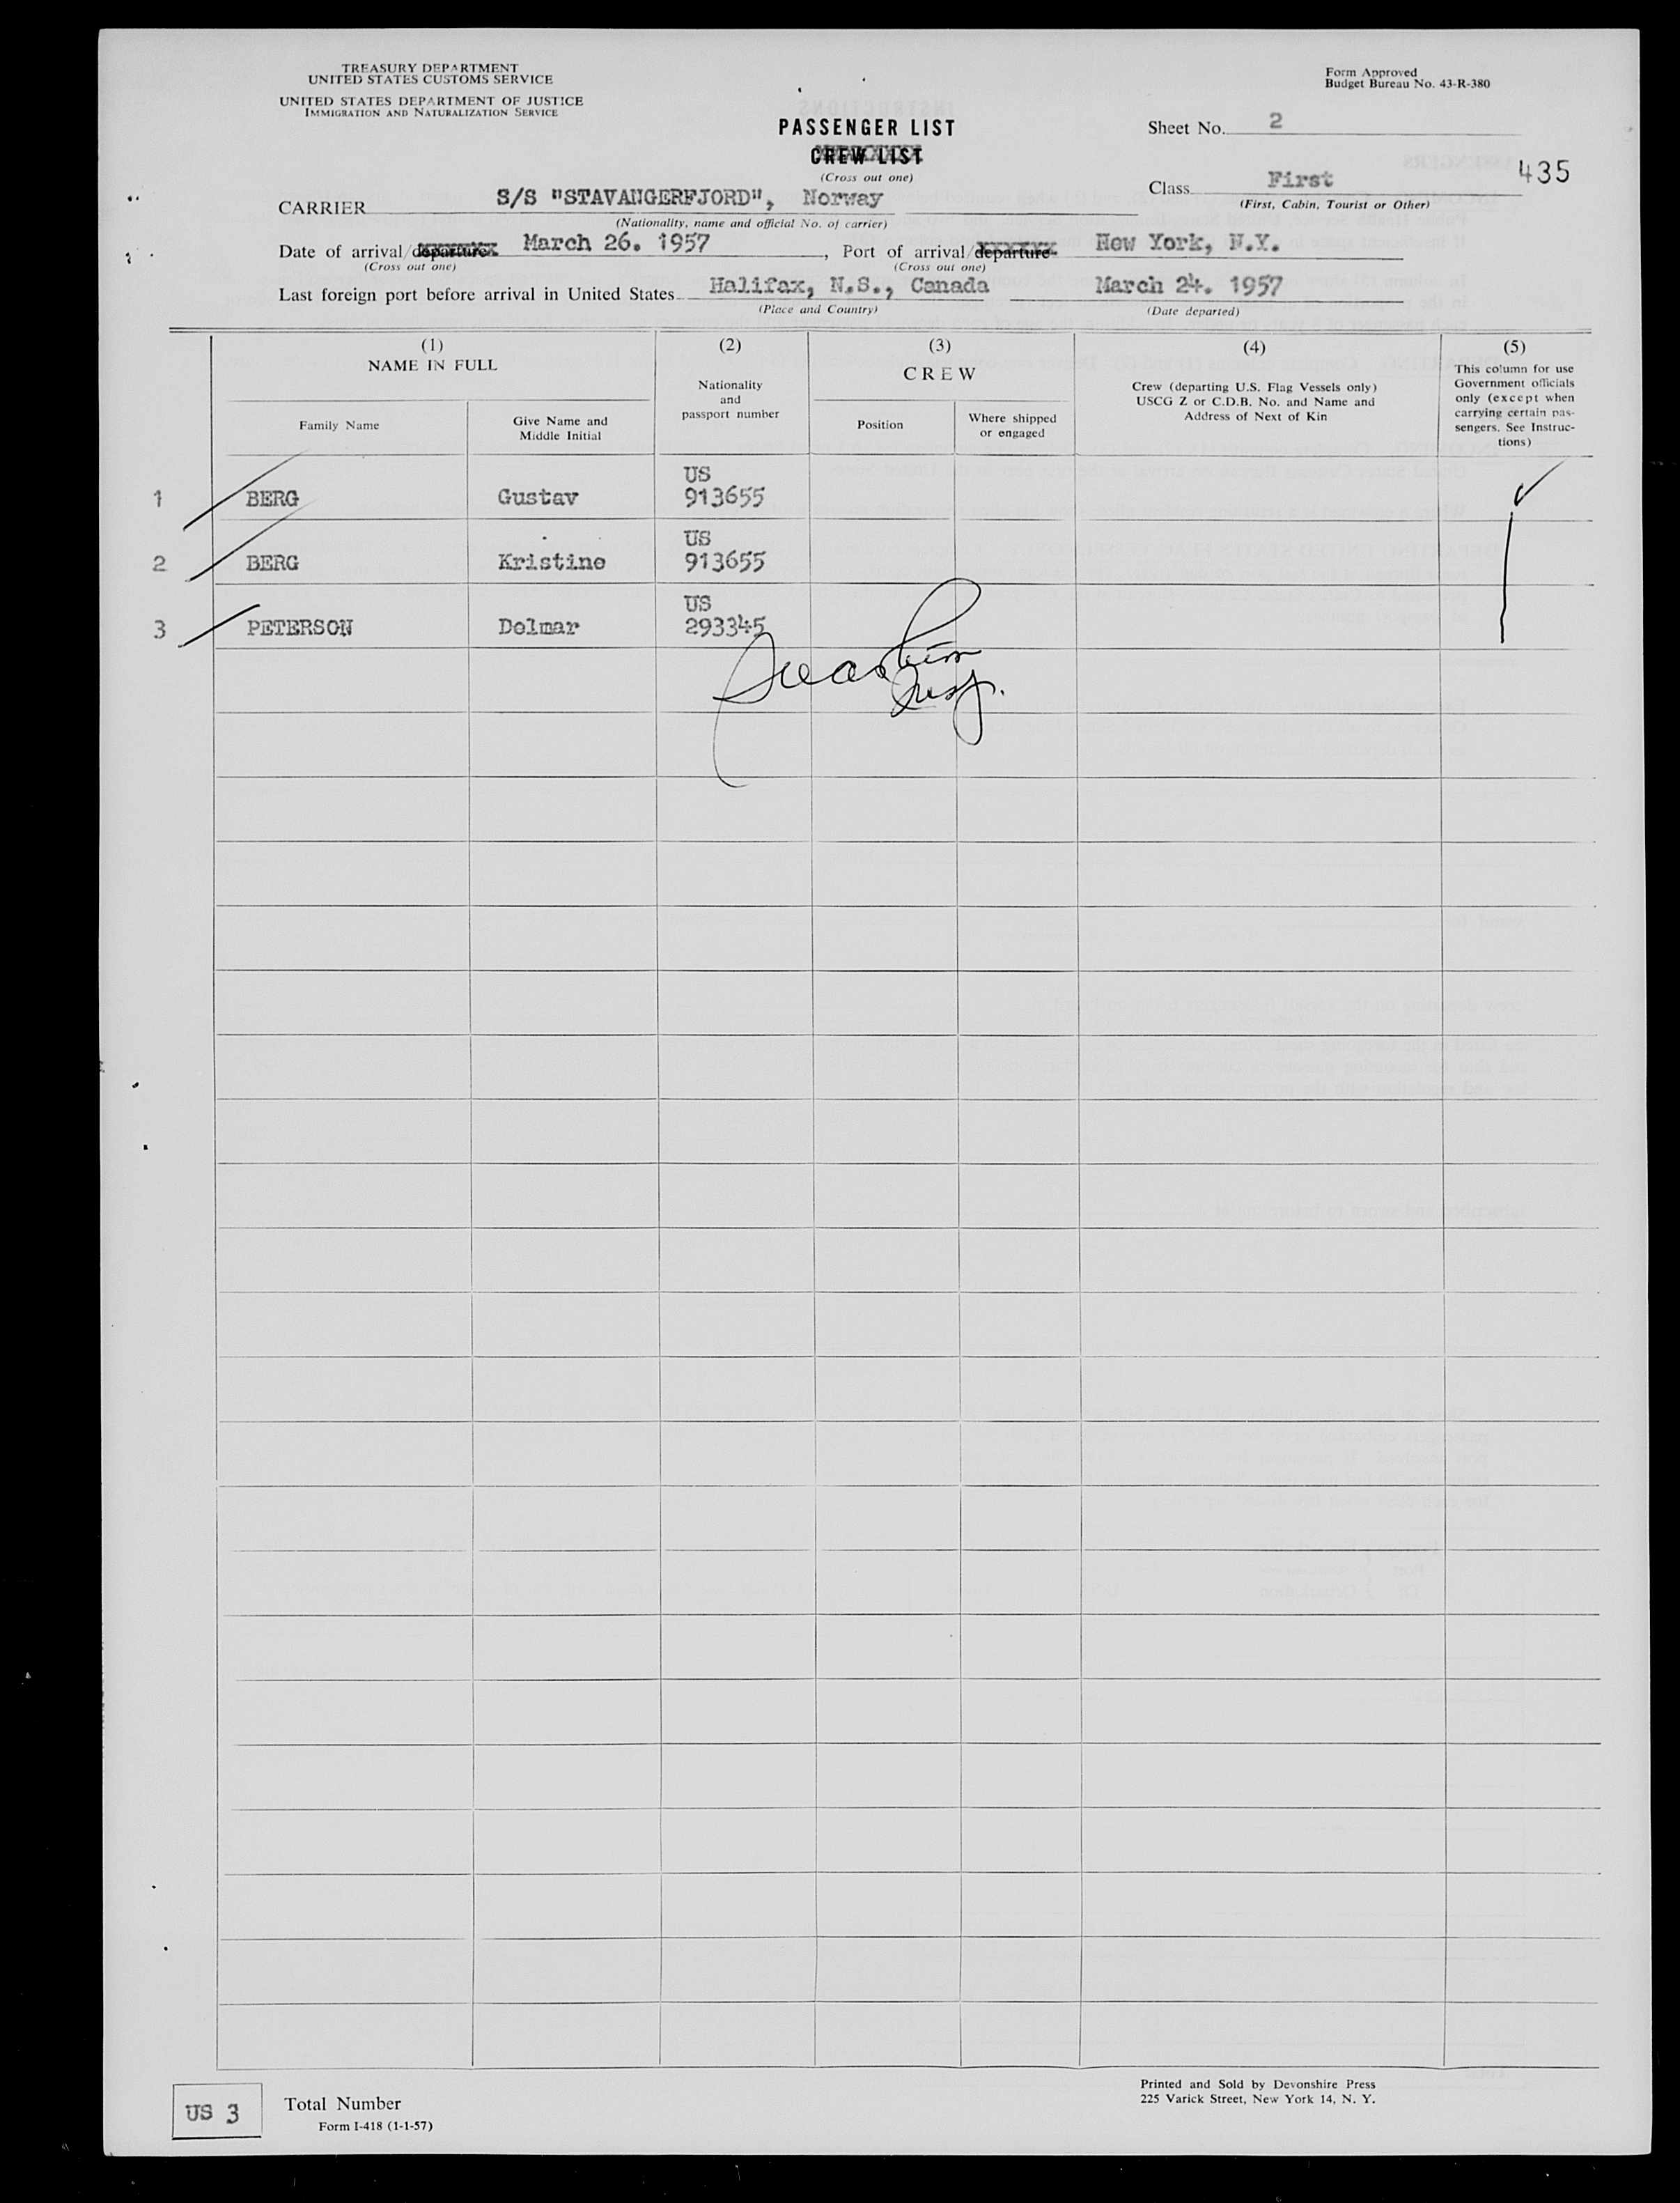 TREASURY DEPARTMENT
UNITED STATES CUSTOMS SERVICE
UNITED STATES DEPARTMENT OF JUSTICE
IMMIGRATION AND NATURALIZATION SERVICE
Form Approved
Budget Bureau No. 43-R-380
PASSENGER LIST
CREW LIST
(Cross out one)
Sheet No. 2
435
Class First
(First, Cabin, Tourist or Other)
CARRIER S/S "STAVANGERFJORD", Norway
(Nationality, name and official No. of carrier)
Date of arrival/departure March 26. 1957, Port of arrival/departure New York, N.Y.
(Cross out one) (Cross out one)
Last foreign port before arrival in United States Halifax, N.S., Canada March 24. 1957
(Place and Country) (Date departed)
(1) (2) (3) (4) (5)
NAME IN FULL
Family Name
Give Name and
Middle Initial
Nationality
and
passport number
CREW
Position
Where shipped
or engaged
Crew (departing U.S. Flag Vessels only)
USCG Z or C.D.B. No. and Name and
Address of Next of Kin
This column for use
Government officials
only (except when
carrying certain pas-
sengers. See Instruc-
tions)
US
1 BERG Gustav 913655
US
2 BERG Kristine 913655
US
3 PETERSON Delmar 293345
Insp.
US 3
Total Number
Form I-418 (1-1-57)
Printed and Sold by Devonshire Press
225 Varick Street, New York 14, N. Y.